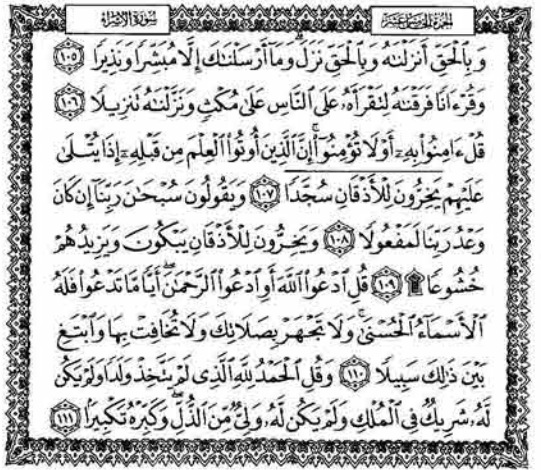 الجزء الخامس عشر سورة الإسراء
وَبِالْحَقِّ أَنزَلْنَاهُ وَبِالْحَقِّ نَزَلَ وَمَا أَرْسَلْنَاكَ إِلَّا مُبَشِّرًا وَنَذِيرًا ١٠٥
وَقُرْءَانًا فَرَقْنَاهُ لِتَقْرَأَهُ عَلَى النَّاسِ عَلَىٰ مُكْثٍ وَنَزَّلْنَاهُ تَنزِيلًا ١٠٦
قُلْ ءَامِنُوا بِهِ أَوْ لَا تُؤْمِنُوا إِنَّ الَّذِينَ أُوتُوا الْعِلْمَ مِن قَبْلِهِ إِذَا يُتْلَىٰ
عَلَيْهِمْ يَخِرُّونَ لِلْأَذْقَانِ سُجَّدًا ١٠٧ وَيَقُولُونَ سُبْحَانَ رَبِّنَا إِن كَانَ
وَعْدُ رَبِّنَا لَمَفْعُولًا ١٠٨ وَيَخِرُّونَ لِلْأَذْقَانِ يَبْكُونَ وَيَزِيدُهُمْ
خُشُوعًا ۩ ١٠٩ قُلِ ادْعُوا اللَّهَ أَوِ ادْعُوا الرَّحْمَٰنَ أَيًّا مَّا تَدْعُوا فَلَهُ
الْأَسْمَاءُ الْحُسْنَىٰ وَلَا تَجْهَرْ بِصَلَاتِكَ وَلَا تُخَافِتْ بِهَا وَابْتَغِ
بَيْنَ ذَٰلِكَ سَبِيلًا ١١٠ وَقُلِ الْحَمْدُ لِلَّهِ الَّذِي لَمْ يَتَّخِذْ وَلَدًا وَلَمْ يَكُن
لَّهُ شَرِيكٌ فِي الْمُلْكِ وَلَمْ يَكُن لَّهُ وَلِيٌّ مِّنَ الذُّلِّ وَكَبِّرْهُ تَكْبِيرًا ١١١